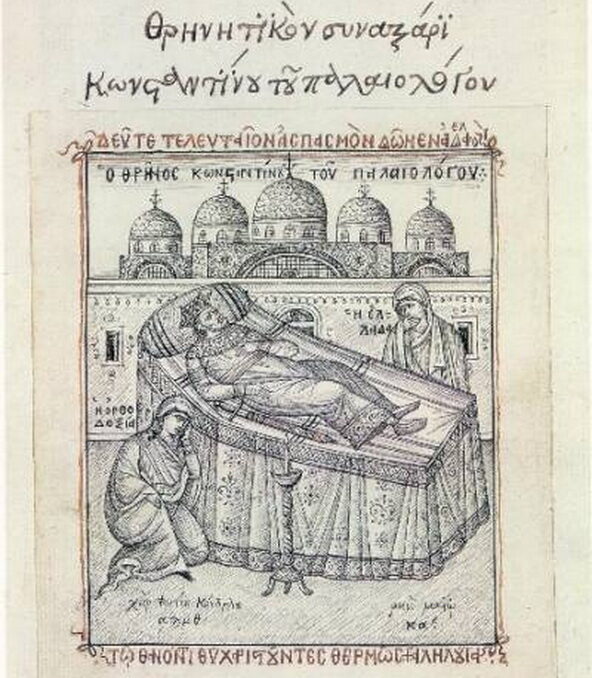 Θρηνητικὸν συναξάρι
Κωνσταντίνου τοῦ Παλαιολόγου
ΔΕῦΤΕ ΤΕΛΕΥΤΑῖΟΝ ἈΣΠΑΣΜῸΝ ΔῶΜΕΝ ἈΔΕΛΦΟῚ
Ὁ ΘΡΗΝΟΣ ΚΩΝΣΤΑΝΤΙΝΟΥ ΤΟΥ ΠΑΛΑΙΟΛΟΓΟΥ
Ἡ ἙΛ
ΛΗΔΑ
Η ΟΡΘΟ
ΔΟΞΙΑ
χεὶρ Φωτίου Κόντογλου
αϡμθ
μαΐῳ
κα
ΤΩ ΘΑΝΟΝΤΙ ΕΥΧΑΡΙΣΤΟΥΝΤΕΣ ΘΕΡΜΩΣ ΑΛΛΗΛΟΥΙΑ